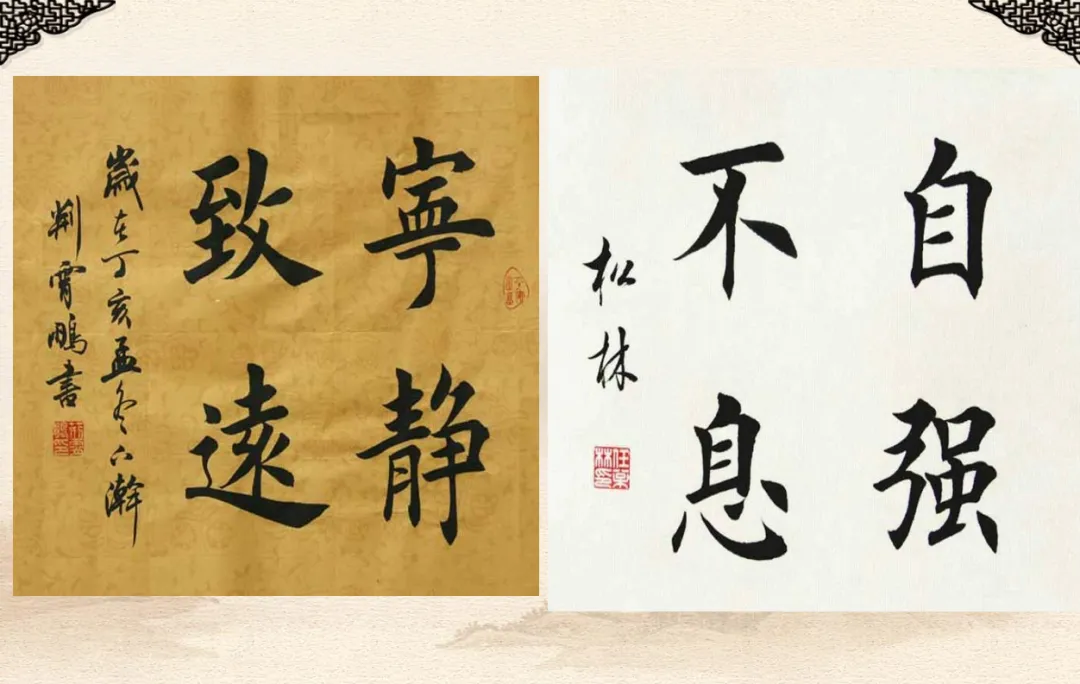 寧静
致遠
歲在丁亥孟冬
霄鵬書
自强
不息
松林